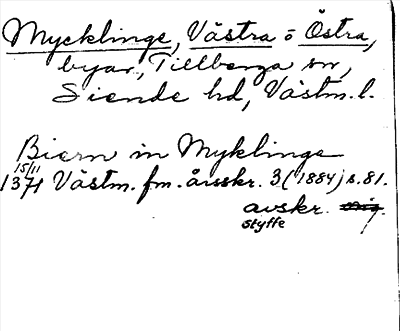 Mycklinge, Västra o Östra,
byar, Tillberga sn,
Siende hd, Västm. l.
Biern in Myklinge
15/11
1371 Västm. fm. årsskr. 3 (1884) s. 81.
avskr. orig.
Styffe